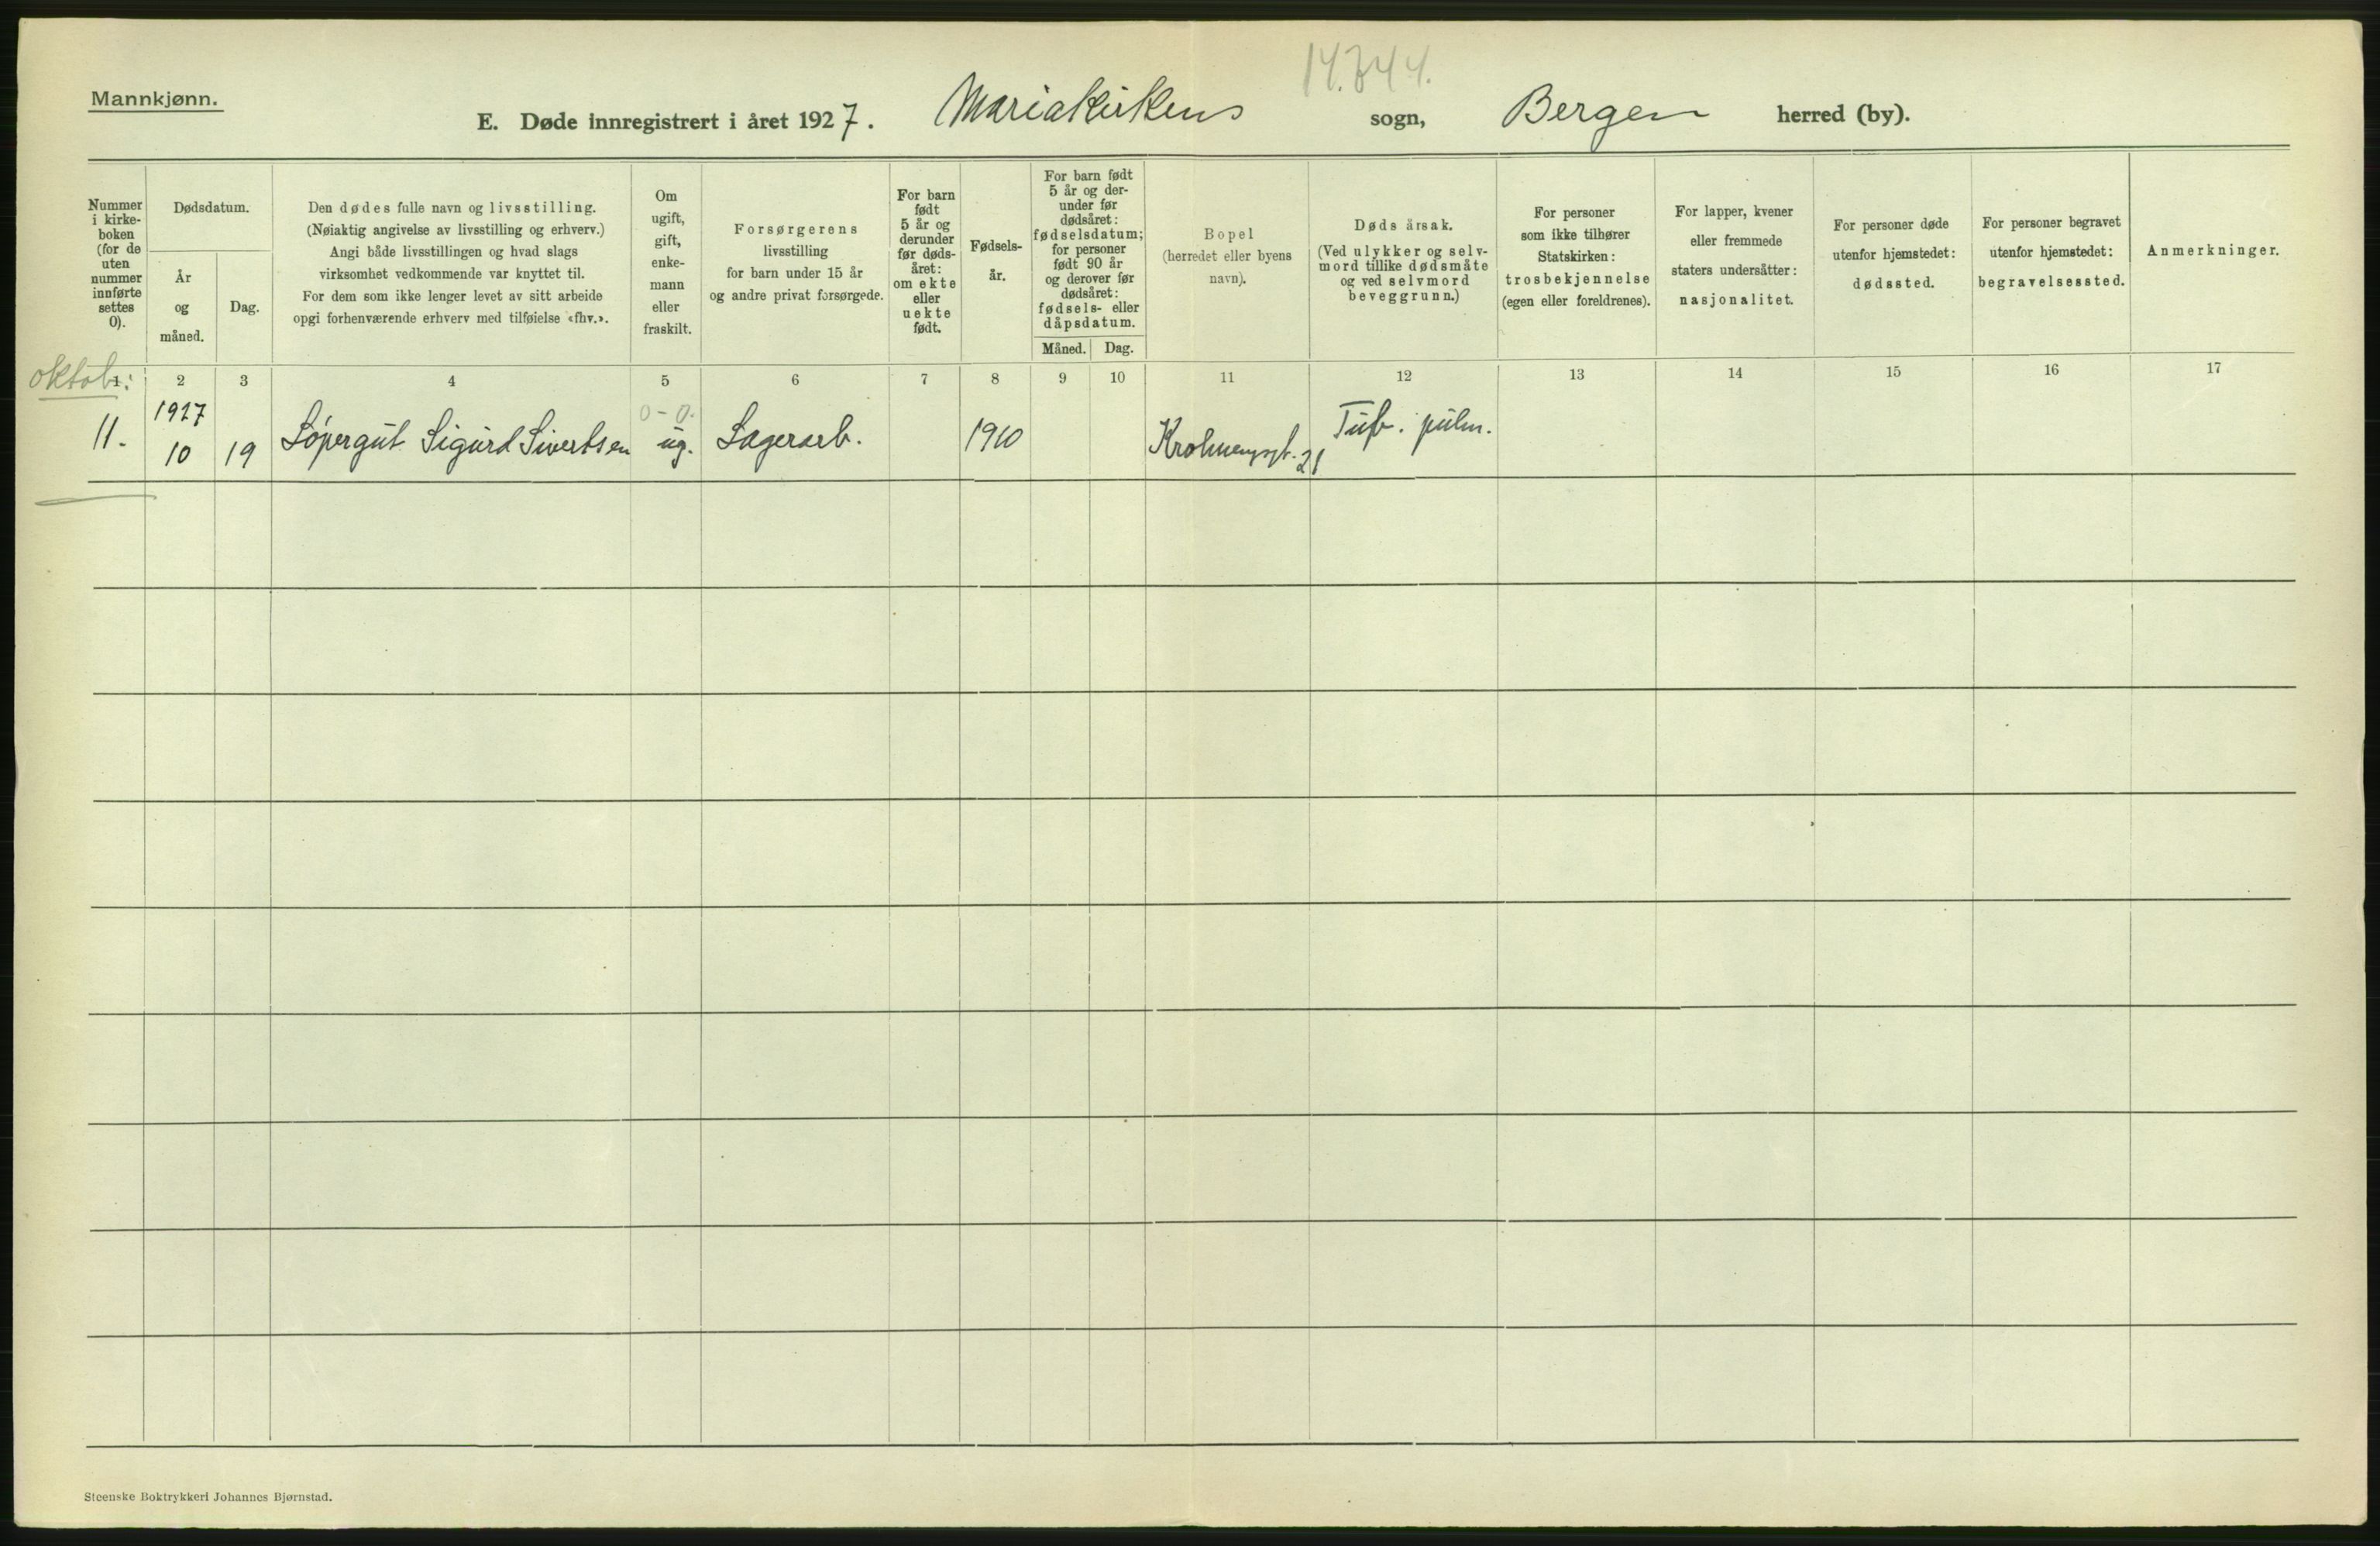 14.344.
Mannkjønn.
E. Døde innregistrert i året 1927. Mariakirkens sogn, Bergen herred (by).
Nummer
i kirke-
boken
(for de
uten
nummer
innførte
settes
0).
Dødsdatum.
År
og
måned.
Dag.
Den dødes fulle navn og livsstilling.
(Nøiaktig angivelse av livsstilling og erhverv.)
Angi både livsstillingen og hvad slags
virksomhet vedkommende var knyttet til.
For dem som ikke lenger levet av sitt arbeide
opgi forhenværende erhverv med tilføielse «fhv.».
Om
ugift,
gift,
enke-
mann
eller
fraskilt.
Forsørgerens
livsstilling
for barn under 15 år
og andre privat forsørgede.
For barn
født
5 år og
derunder
før døds-
året:
om ekte
eller
uekte
født.
Fødsels-
år.
For barn født
5 år og der-
under før
dødsåret:
fødselsdatum;
for personer
født 90 år
og derover før
dødsåret:
fødsels- eller
dåpsdatum.
Måned. Dag.
Bopel
(herredet eller byens
navn).
Dødsårsak.
(Ved ulykker og selv-
mord tillike dødsmåte
og ved selvmord
beveggrunn.)
For personer
som ikke tilhører
Statskirken:
trosbekjennelse
(egen eller foreldrenes).
For lapper, kvener
eller fremmede
staters undersåtter:
nasjonalitet.
For personer døde
utenfor hjemstedet:
dødssted.
For personer begravet
utenfor hjemstedet:
begravelsessted.
Anmerkninger.
oktob:
1 2 3 4 5 6 7 8 9 10 11 12 13 14 15 16 17
1927 0-0.
11. 10 19 Løpergut Sigurd Sivertsen ug. Lagerarb. 1910 21 Tub. pulm.
Steenske Boktrykkeri Johannes Bjørnstad.